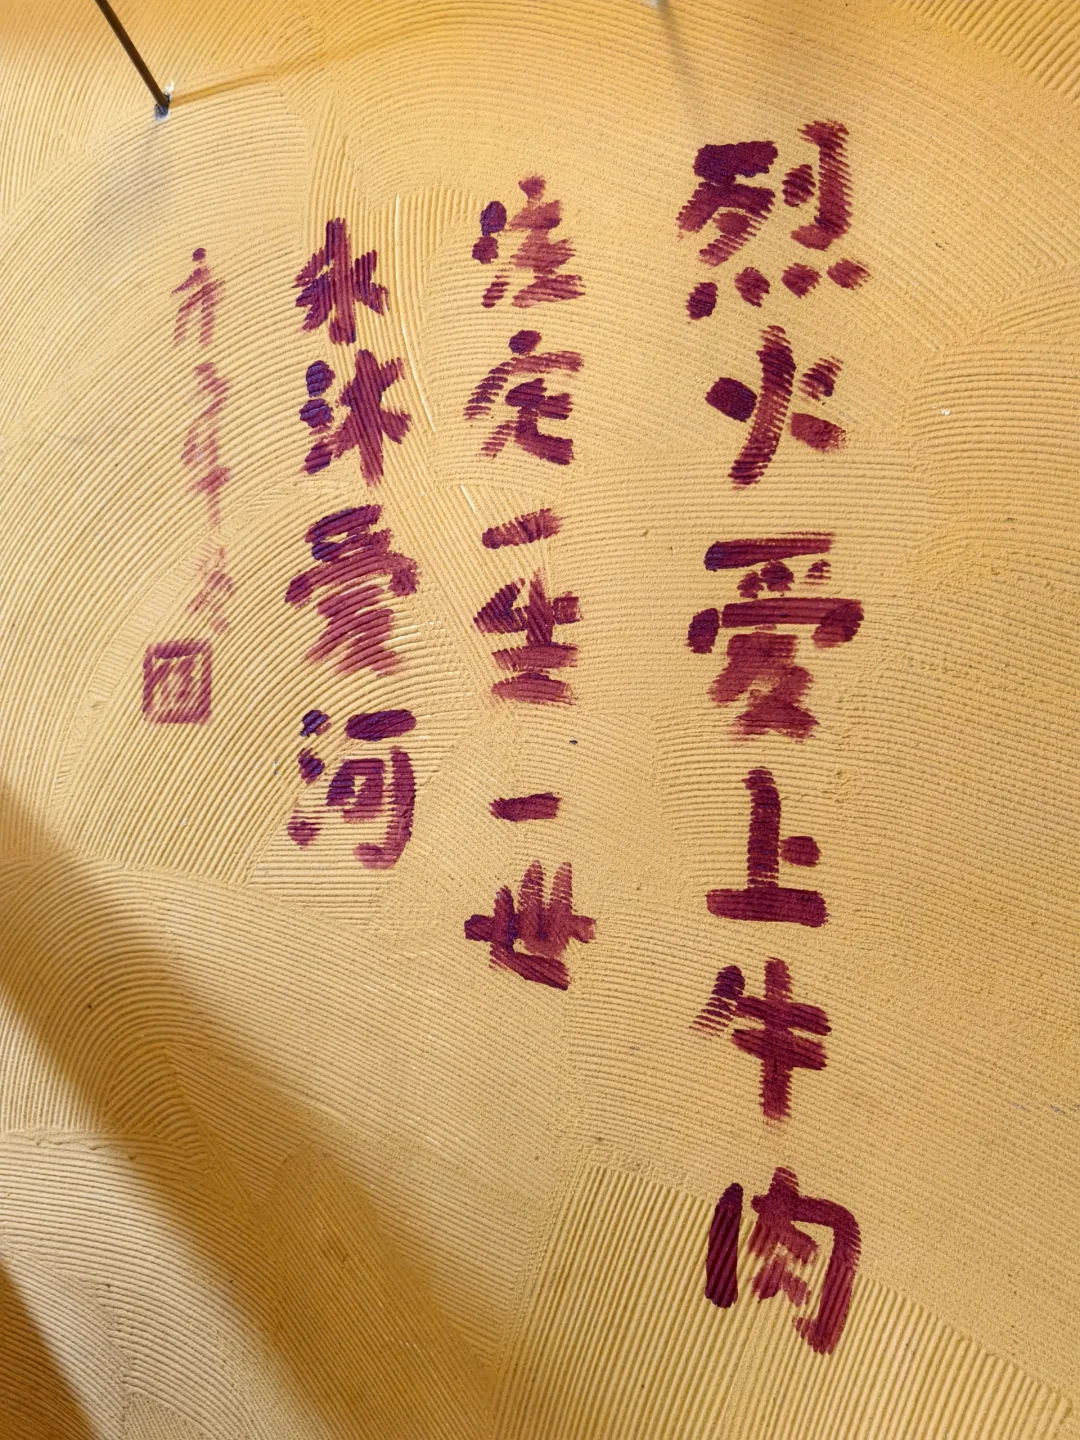 烈火爱上牛肉
注定一生一世
永沐爱河